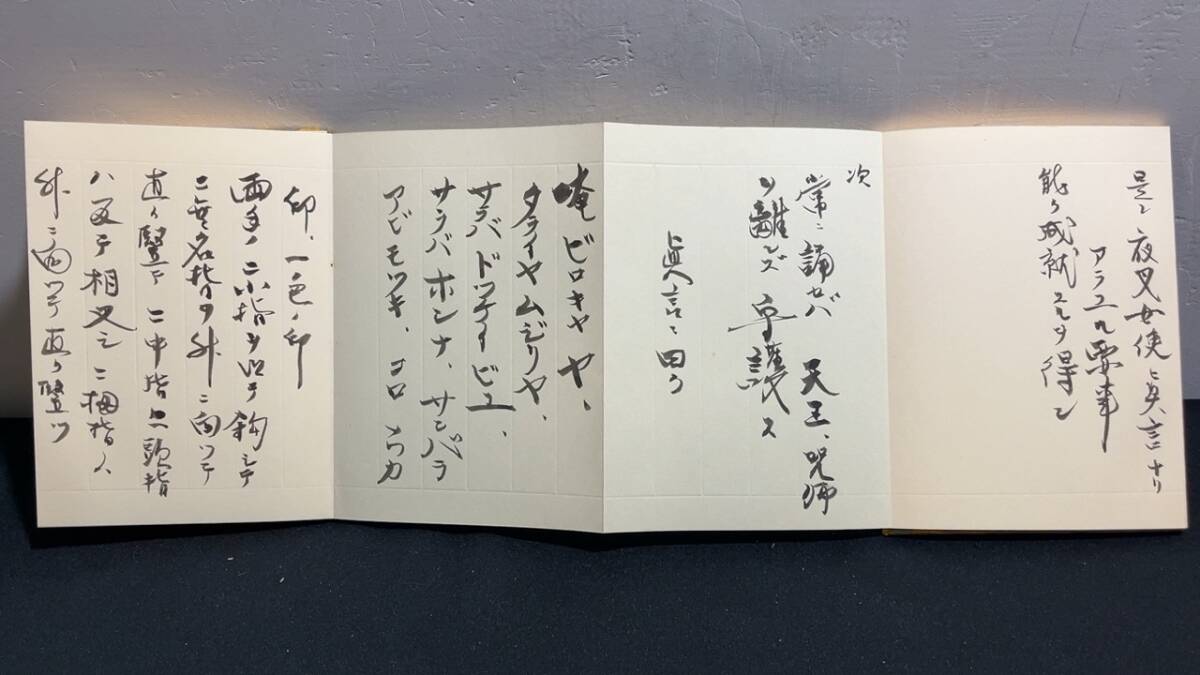 是レ夜叉女使ト真言ナリ
アラユル要事
能ク成就スルヲ得ン
次
常ニ誦セバ 天王、呪師
ヲ離レズ 守護ス
真言ニ曰ク
唵ビロキヤヤ、
タライヤムジリヤ、
サラバドツテイビユ、
サラバホンナ、サンバラ
アビモツキ、ソロ
印、一ノ色ノ印
両手ノ二小指ヲ以テ鈎シテ
二無名指ヲ外ニ向ツテ
直ク豎テ二中指二頭指
ハ叉テ相叉シ二拇指ハ
外ニ向ツテ直ク豎ツ